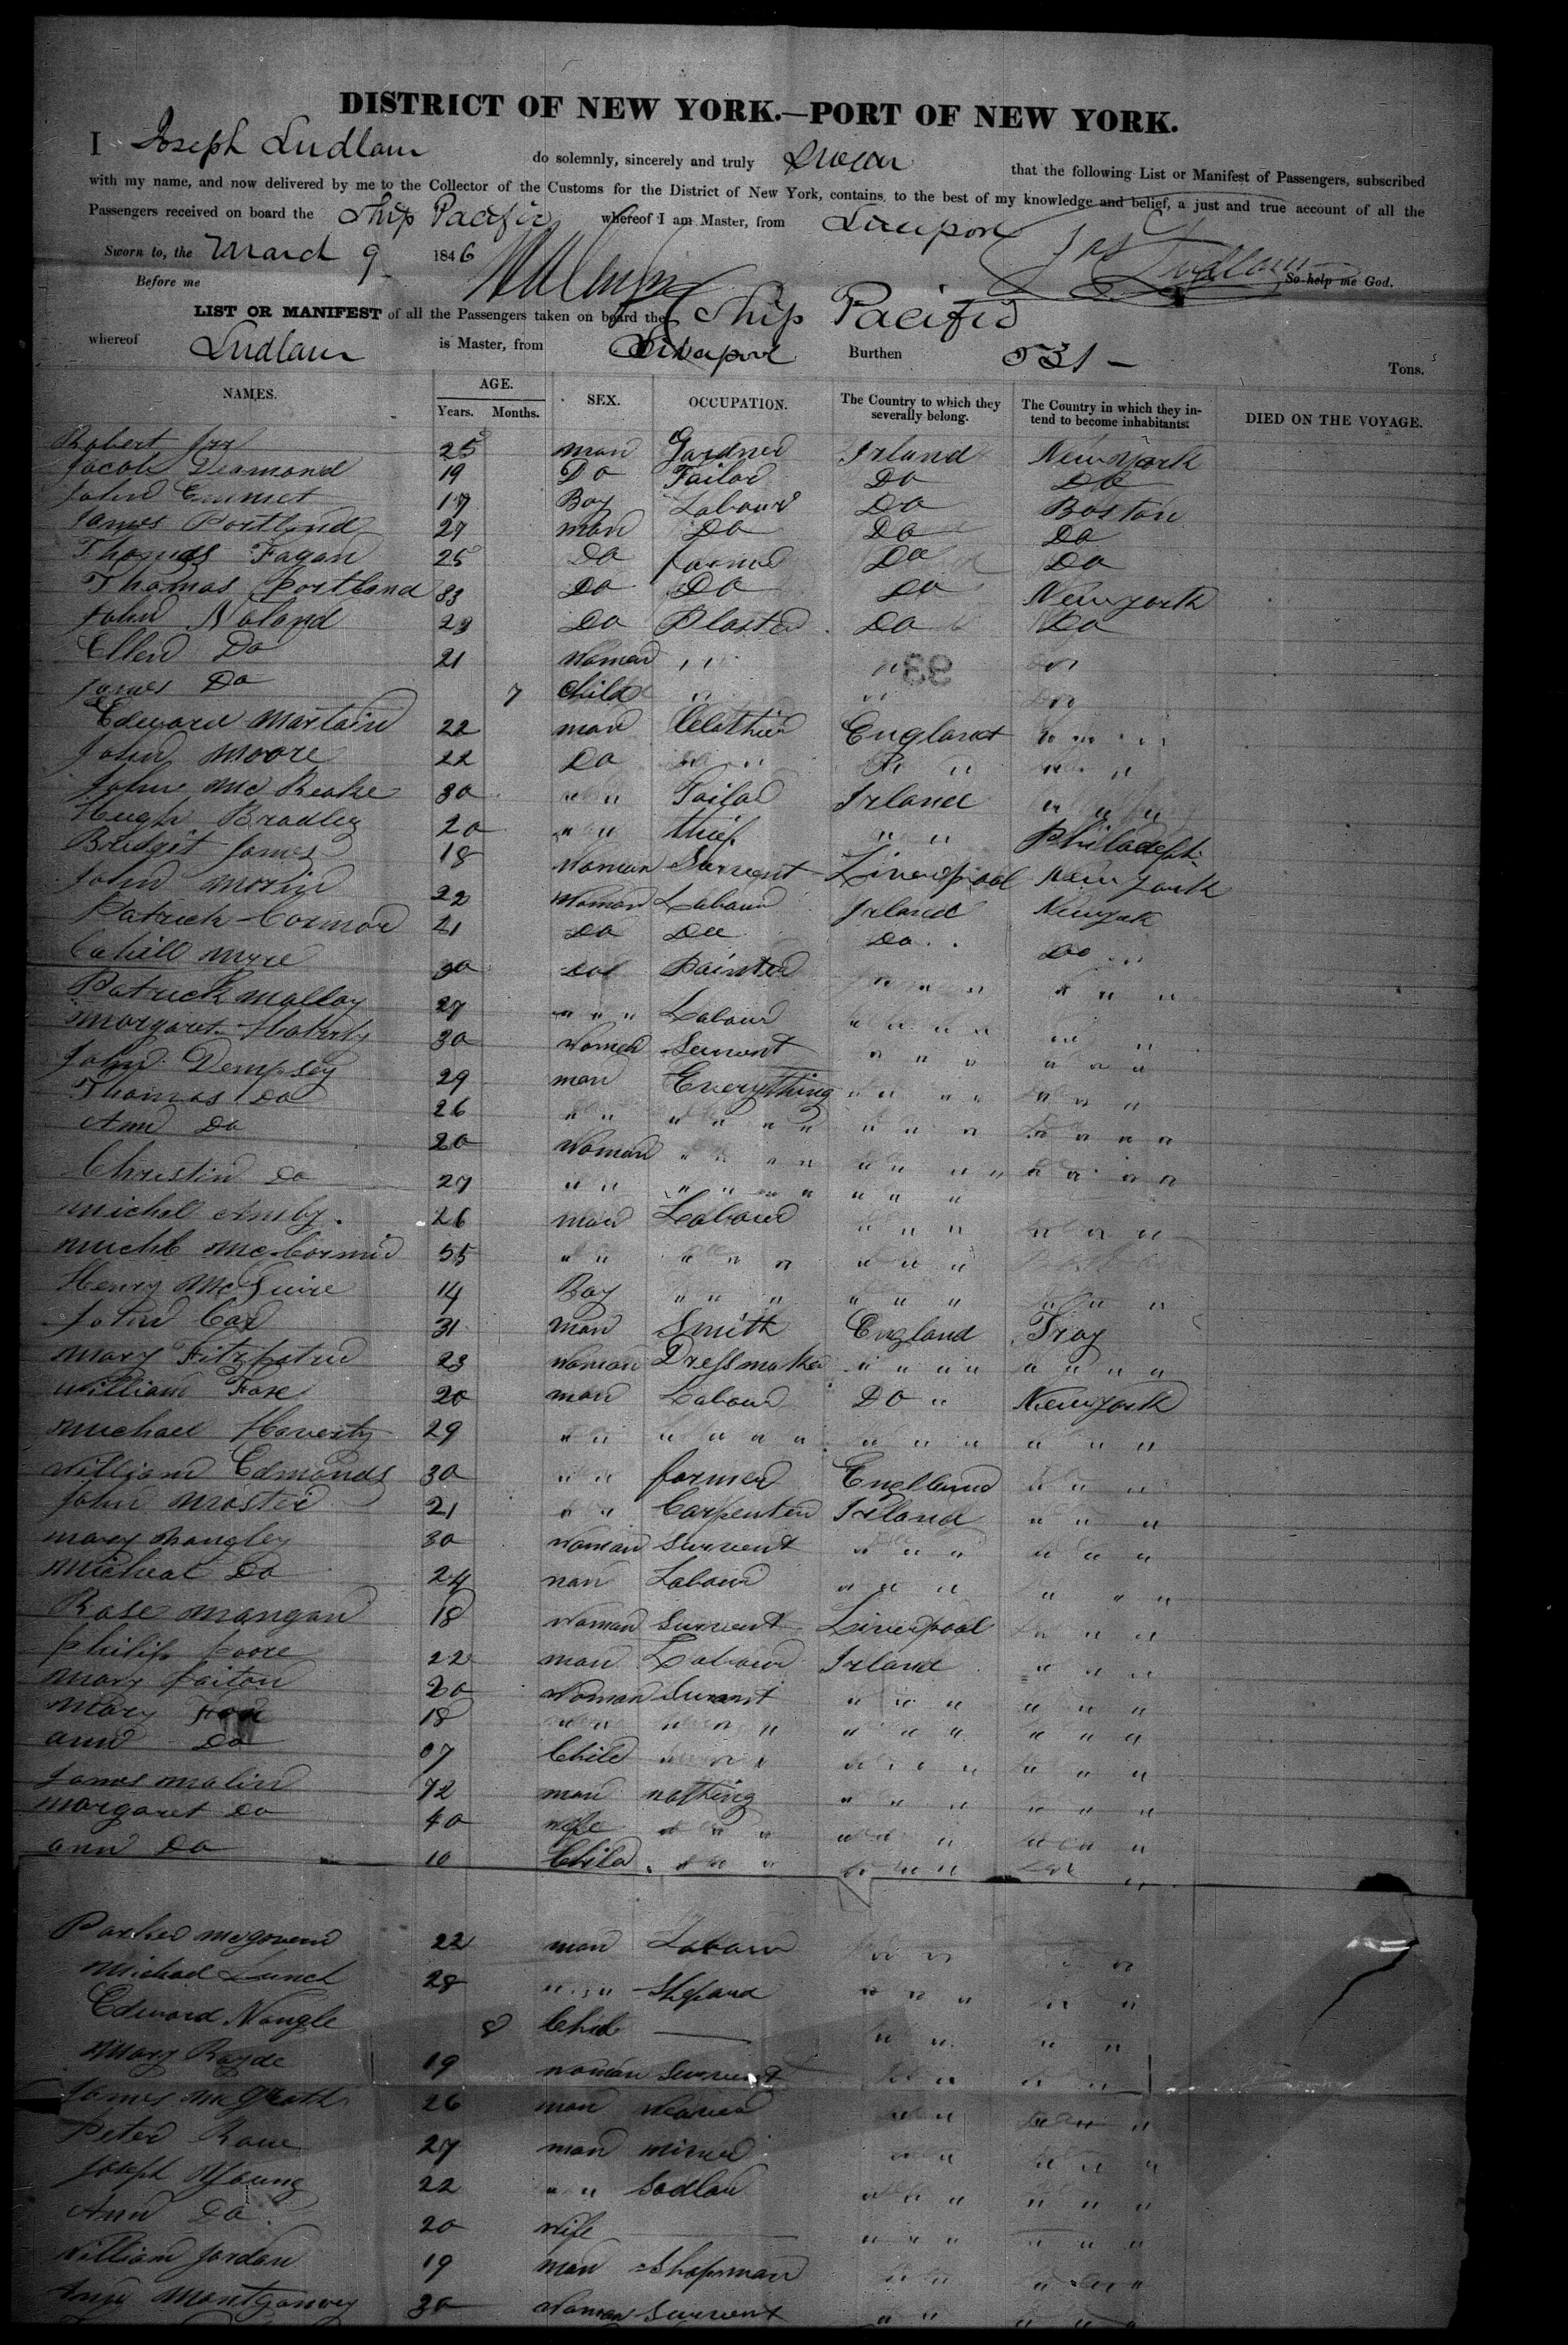 DISTRICT OF NEW YORK.—PORT OF NEW YORK.
I Joseph Ludlam do solemnly, sincerely and truly Swear that the following List or Manifest of Passengers, subscribed
with my name, and now delivered by me to the Collector of the Customs for the District of New York, contains, to the best of my knowledge and belief, a just and true account of all the
Passengers received on board the Ship Pacific whereof I am Master, from Liverpool
Sworn to, the March 9 1846 Jos Ludlam So help me God.
Before me
LIST OR MANIFEST of all the Passengers taken on board the Ship Pacific
whereof Ludlam is Master, from Liverpool Burthen 531 — Tons.
NAMES. AGE. Years. Months. SEX. OCCUPATION. The Country to which they severally belong. The Country in which they intend to become inhabitants. DIED ON THE VOYAGE.
Robert 25 man Gardner Irland New York
Jacob Desmond 19 Do Tailor Do Do
John 17 Boy Labour Do Boston
James Portland 27 man Do Do Do
Thomas Fagan 25 Do farmer Do Do
Thomas Portland 33 Do Do Do New york
John Noland 23 Do Plaster Do Do
Ellen Do 21 Women " " " " "
James Do 7 Child " " "
Edward Martain 22 man Clothier England " "
John Moore 22 Do " " " " "
John Mc 30 " " Tailor Irland " "
Hugh Bradley 20 " " thief " " Philadelph
Bridgit James 18 Woman Survent Liverpool New York
John Morin 22 Woman Labour Irland New york
Patrick Cormor 21 Do Do Do Do
Cahill 30 Do Painter " " " " " "
Patrick Malloy 27 " " " Labour " " " " " "
Margaret 30 Women Servent " " " " " "
John Dempsey 29 man Everything " " " " " " "
Thomas Do 26 " " " " " " " " " " " " "
Ann Do 20 Woman " " " " " " " " " " " "
Christin Do 27 " " " " " " " " "
Michel 26 man Labour " " " " " "
Michl McCormic 55 " " " " " " " "
Henry McGuire 14 Boy " " " " " " " " "
John 31 man Smith England Troy
Mary Fitzpatric 23 Woman Dressmaker " " " " " " " "
William Fox 20 man Labour Do " New york
Michael Haverty 29 " " " " " " " " " " " "
William Edmonds 30 " " farmer England " " "
John Master 21 " " Carpenter Irland " " "
Mary Mangley 30 Woman Survent " " " " " "
Micheal Do 24 man Labour " " " " " "
Rose Mangan 18 Woman Survent Liverpool " " "
Philip Poore 22 man Labour Irland " " "
Mary 20 Woman Survent " " " " " "
Mary 18 " " " " " " " " " "
Ann Do 07 Child " " " " " " " "
James Malin 72 man nothing " " " " " "
Margaret Do 40 wife " " " " " " " "
Ann Do 10 Child " " " " " " "
McGovern 22 man Labour " " "
Michael Lynch 28 " " Shepard " " " " "
Edward Nangle 8 Child — " " " "
Mary 19 woman Survent " " " "
James McGrath 26 man Weaver " " " "
Peter 27 man miner " " " " "
Joseph Young 22 " " Sadlar " " " " " "
Ann Do 20 wife — " " " " " "
William Jordan 19 man Shopman " " " "
Montgomery 30 Woman Survent " " " "